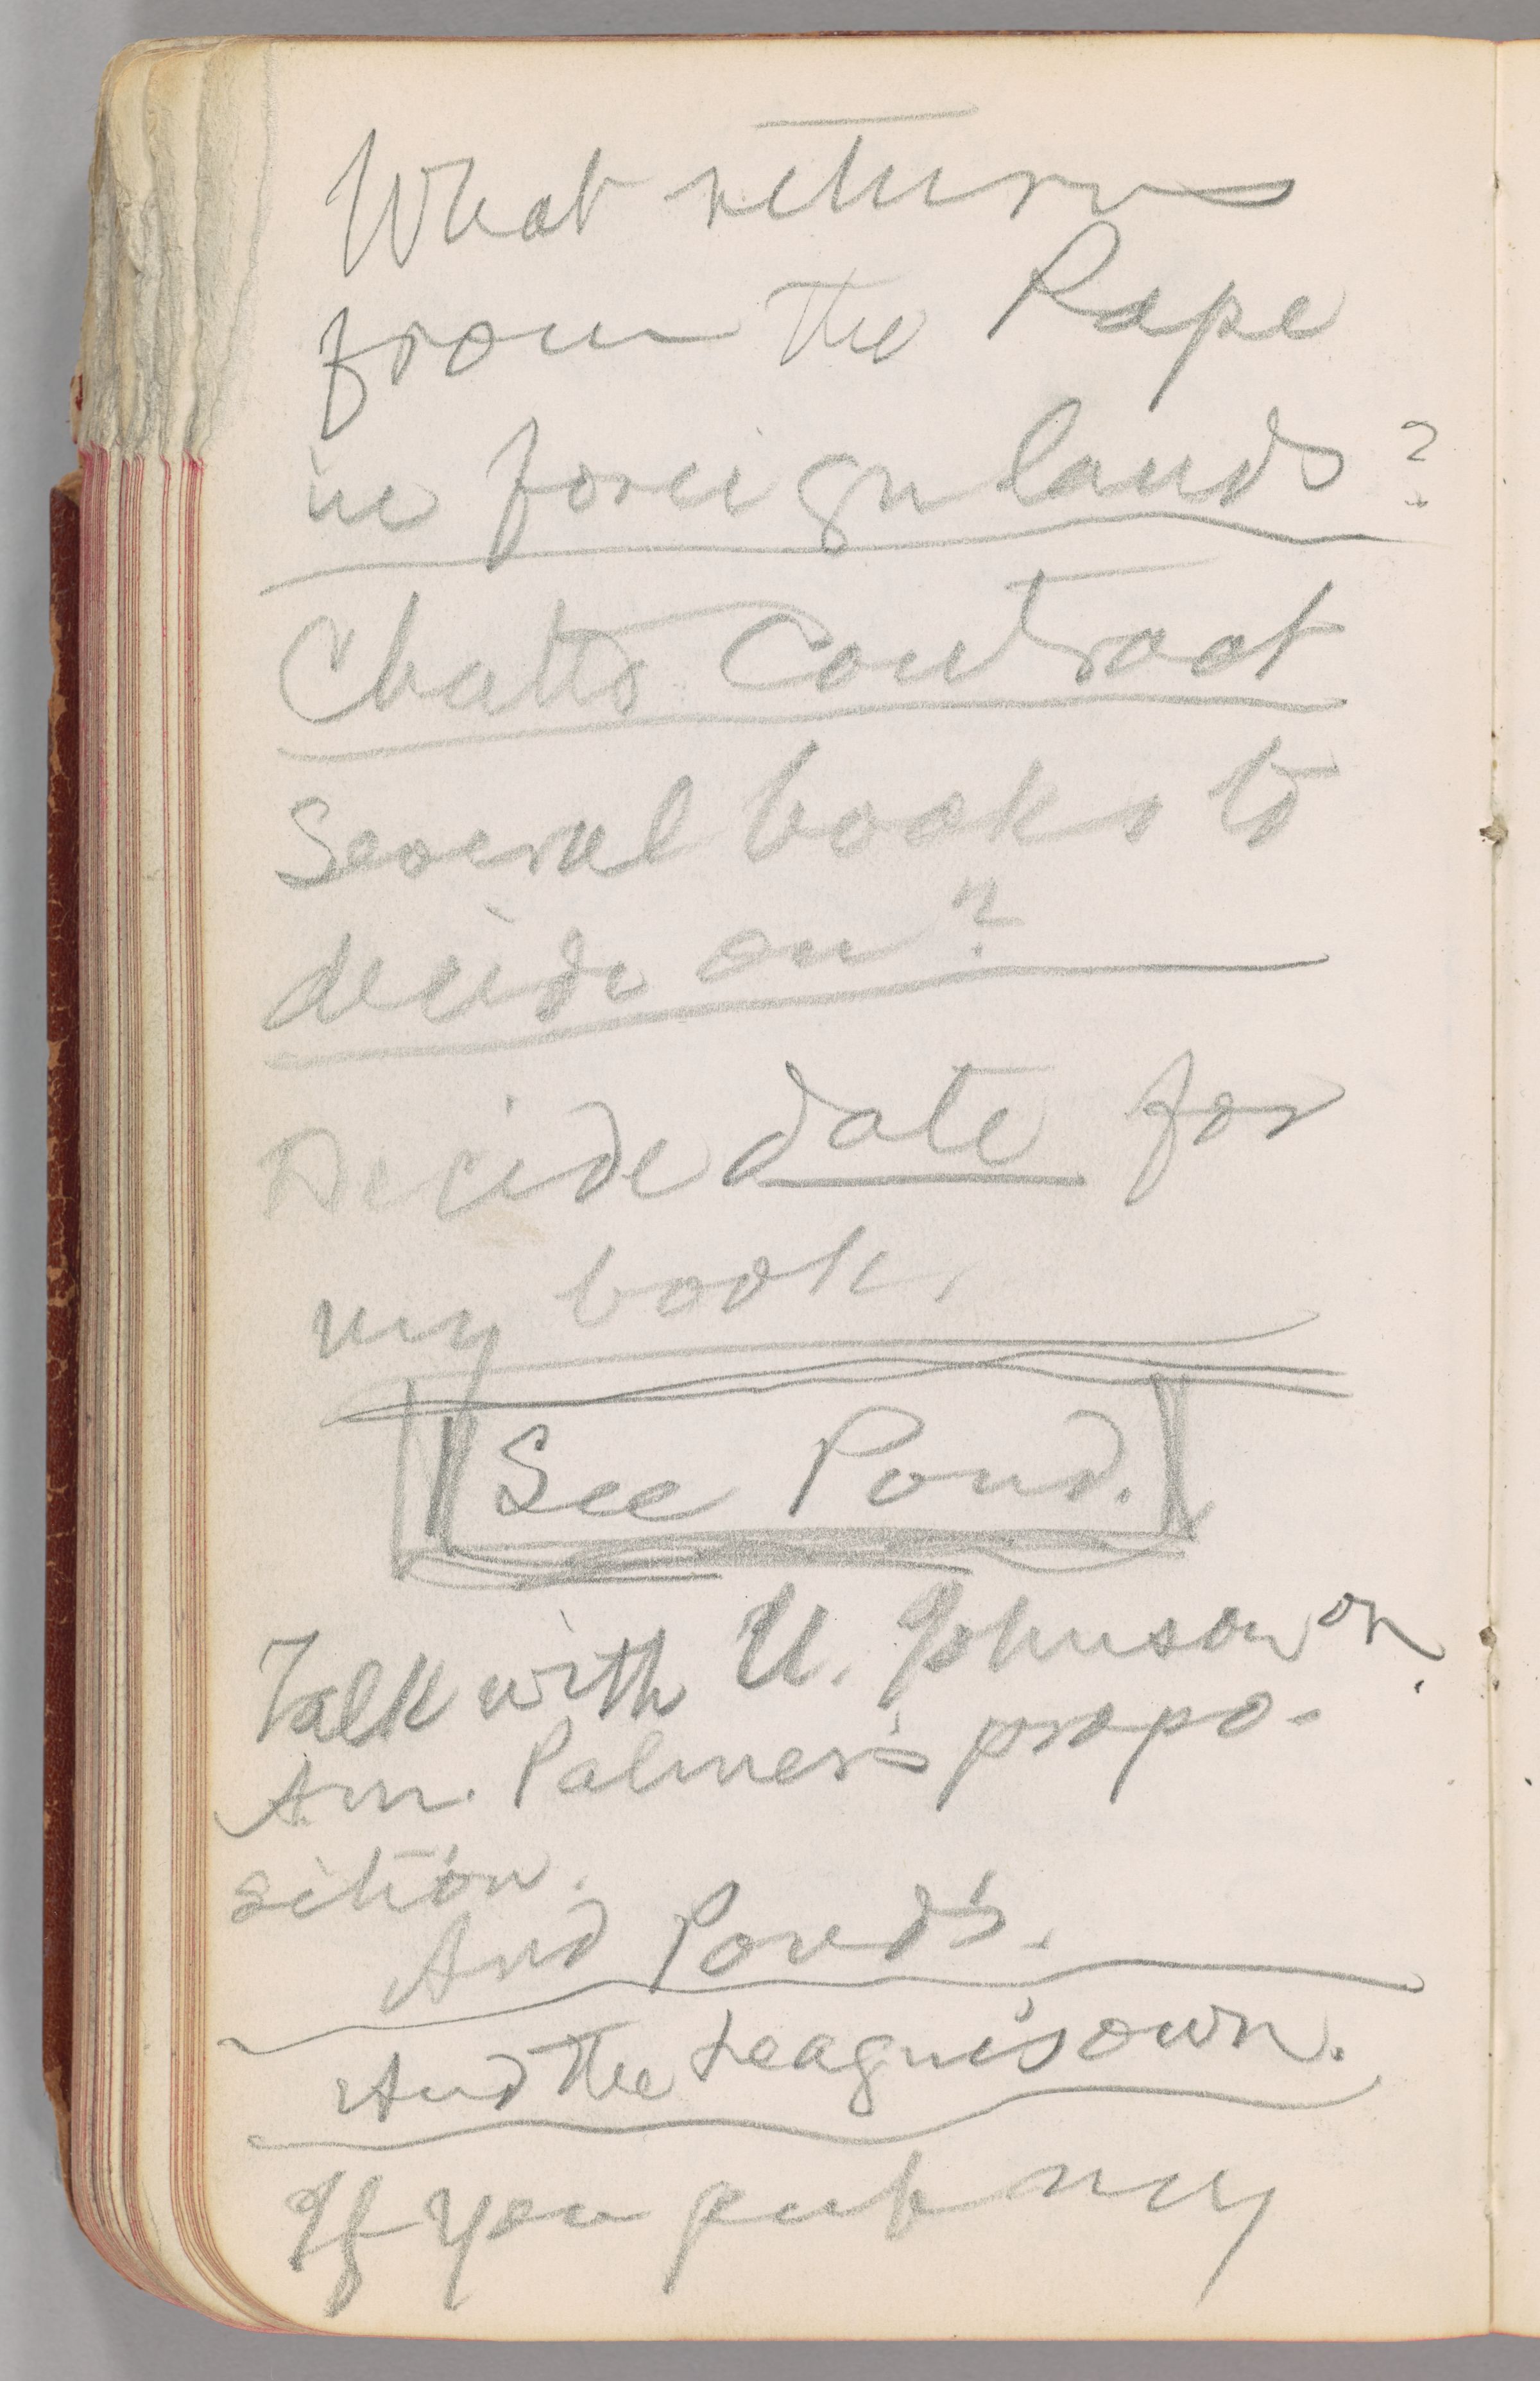 What returns
from the Pope
in foreign lands?
Chatto Contract
Several books to
decide on?
Decide date for
my book.
See Pond.
Talk with U. Johnson on
Am. Palmer's propo-
sition.
And Pond's.
And the League's own.
If you pub my